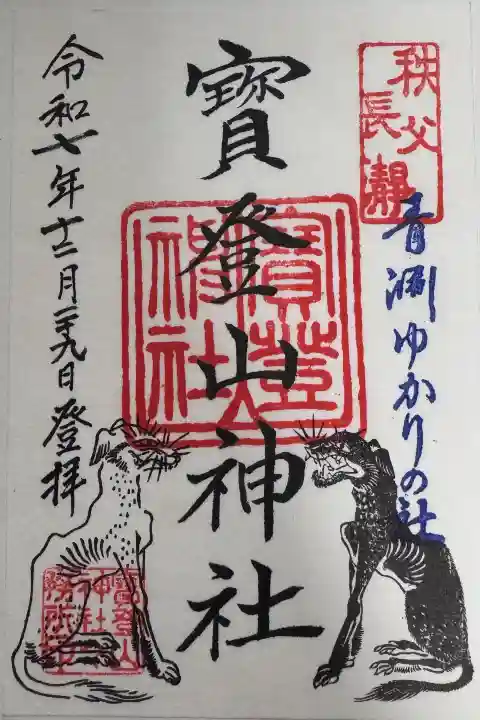 秩父
長瀞
青淵ゆかりの社
寳登山神社
寳登山
神社
令和七年十二月二十九日登拝
寳登山
神社
務所印